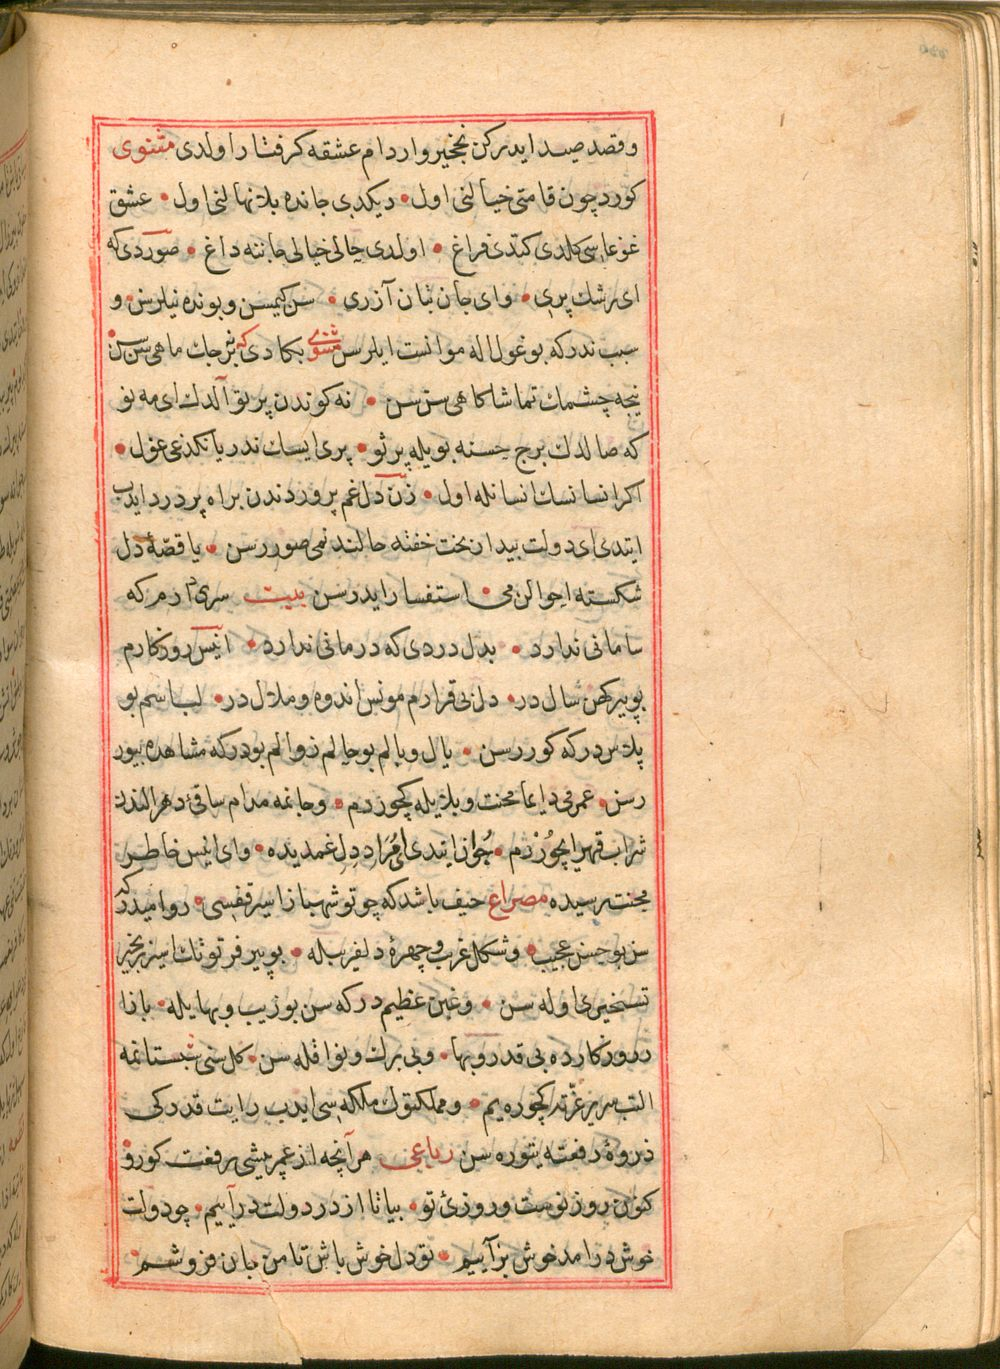 و قصد صید ایدرکن نخجیروار دام عشقه گرفتار اولدی مثنوی
کوردچون قامتی خیالنی اول • دیکدی جانده بلا نهالنی اول • عشق
غوغاسی کلدی کتدی فراغ • اولدی خالی خیالی جاننه داغ • صوردی که
ای رشك پری • وای جان بتان آزری • سن کیمسن و بونده نیلرسن • و
سبب ندر که بو غول اله موانست ایلرسن مثنوی بکا دی که نه برجك ماهی سن سن •
نیجه چشمك تماشاکاهی سن سن • نه کوندن پرتو آلدك ای مه نو
که صالدك برج حسنه بویله پرتو • پری ایسك ندر یانکدغی غول •
اکر انسانسك انسانله اول • زن دل غم پروردندن بر آه پر درد ایدب
ایتدی ای دولت بیدار بخت خفته حالندنمی صوررسن • یا قصهٔ دل
شکسته احوالن می • استفسار ایدرسن بیت سری دارم که
سامانی ندارد • بدل دردی که درمانی ندارد • انیس روزکارم
بو پیر کهن سال در • دل بی قرارم مونس اندوه و ملال در • لباسم بو
پلاس در که کوررسن • یال و بالم بو حالم زوالم بودر که مشاهده بیور
رسن • عمرمی دایما محنت و بلا یله کچوردم • و جانمه مدام ساقئ دهر الندن
شراب قهر ایچوردم • جوان ایتدی ای مراد دل غمدیده • وای انیس خاطر
محنت رسیده مصراع حیف باشد که چو تو شهباز اسیر قفسی • روا میدر که
سن بو حسن عجیب • و شکل غریب و چهرهٔ دلفریبله • بو پیر فرتوتك اسیر زنجیر
تسخیری اوله سن • و غبن عظیم در که سن بو زیب و بها یله • بازا
ر روزکارده بی قدر و بها • و بی برك و نوا قله سن • کل سنی شبستانمه
الب سریر عزتده کچوره یم • و مملکتوك ملکه سی ایدب رایت قدرکی
ذروهٔ رفعته یتوره سن رباعی هر آنچه از عمر پیشی رفت کو رو
کنون روز نوست و روزئ نو • بیا تا از در دولت درآییم • چو دولت
خوش درآمد خوش برآییم • تو دل خوش باش تا من جان فروشم •